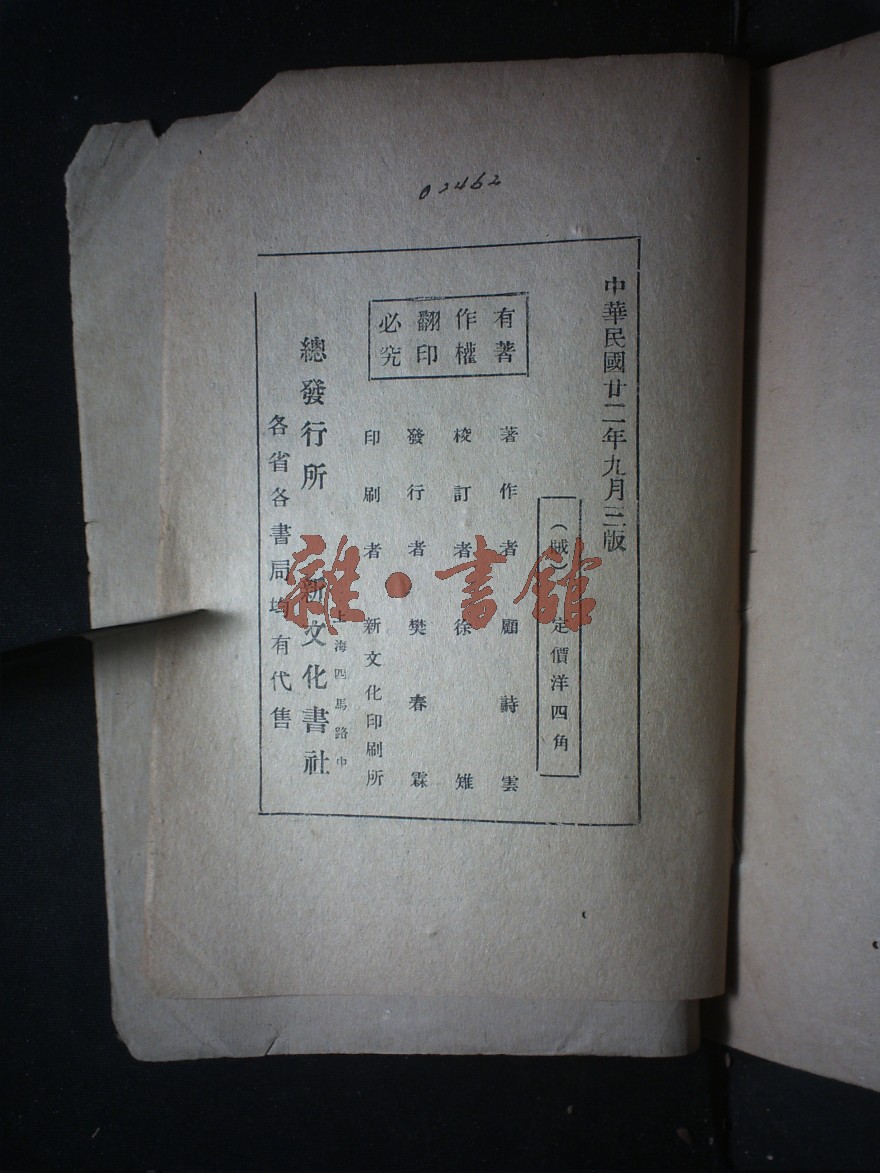 02462
中華民國廿二年九月三版
（賊）定價洋四角
有著
作權
翻印
必究
著作者 顧詩雲
校訂者 徐雉
發行者 樊春霖
印刷者 新文化印刷所
上海四馬路中
總發行所 新文化書社
各省各書局均有代售
雜·書館